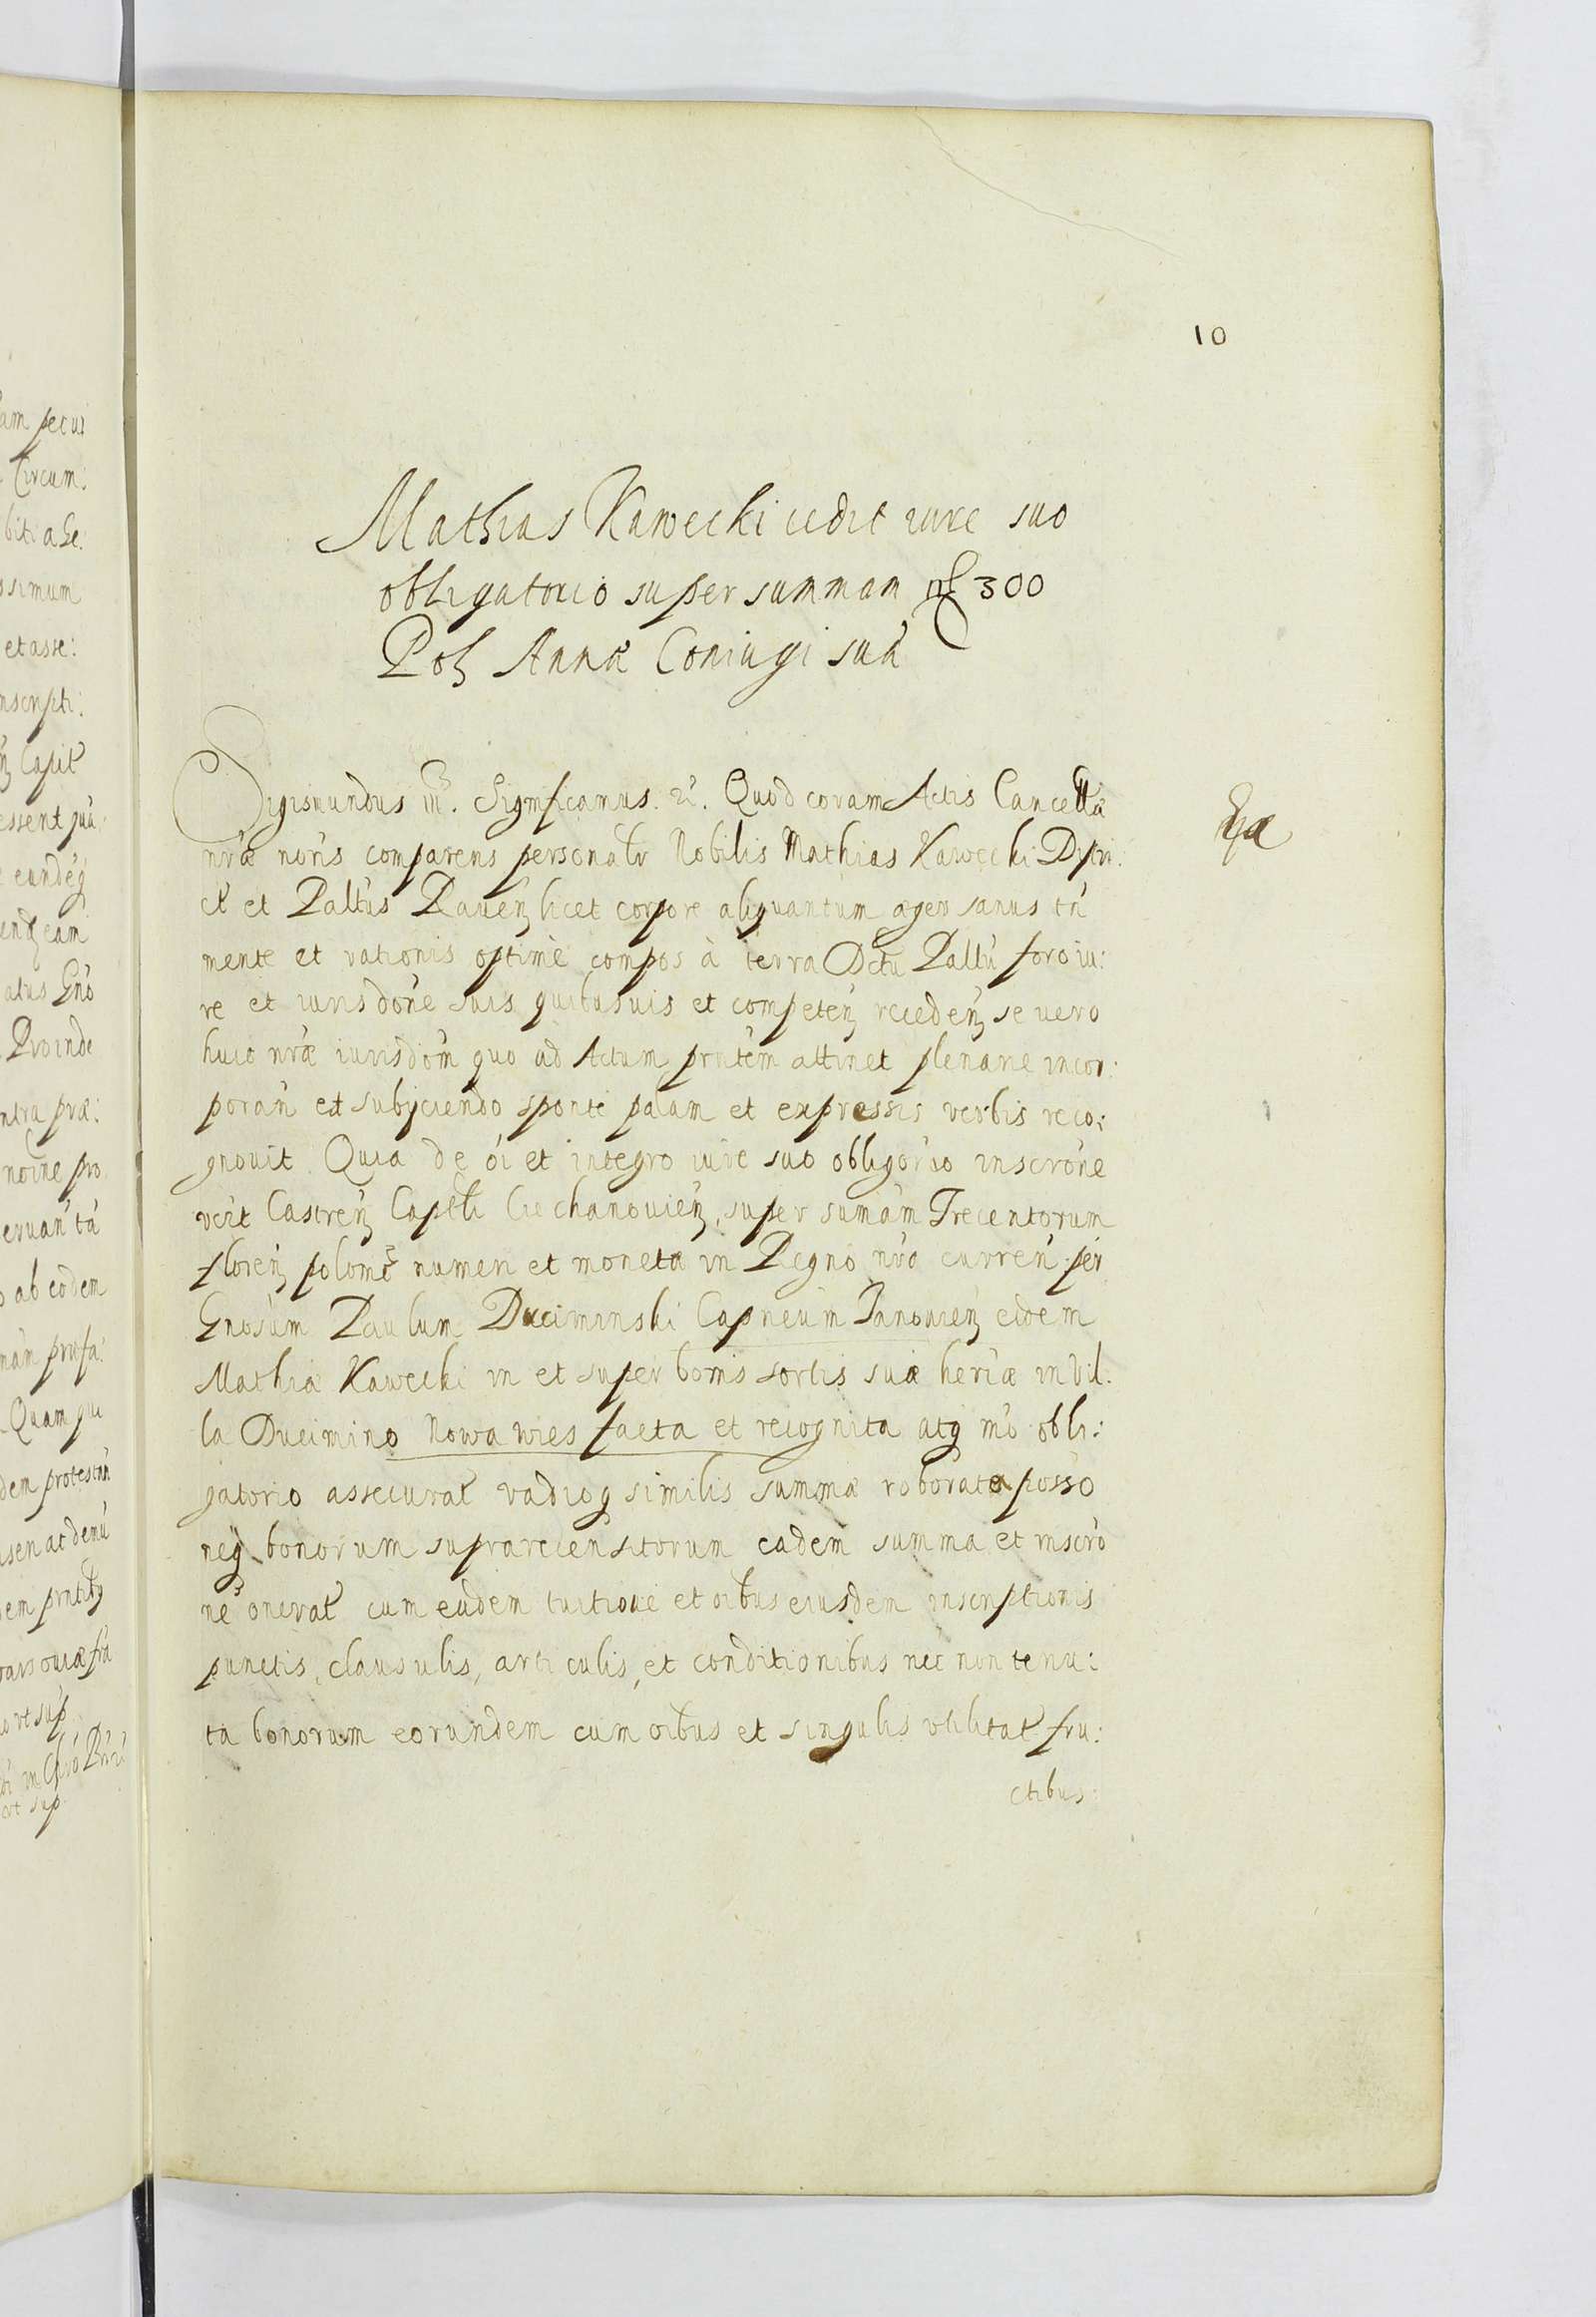 10
Mathias Kawecki cedit iure suo
obligatorio super summam fl 300
Pol Annæ Coniugi suæ
Sigismundus III. Significamus. Quod coram Actis Cancella
nræ noris comparens personalr Nobilis Mathias Kawecki Distri:
ct et Pallus Raveń licet corpore aliquantum æger sanus tń
mente et rationis optimè compos à terra Dctu Pallú foro iu:
re et iurisdone suis quibusuis et competeń recedeń se vero
huic nræ iurisdóm quo ad Actum pntem attinet plenarie incor:
porań et subyciendo sponte palam et expressis verbis reco:
gnovit Quia de oi et integro iure suo obligorio inscrone
vert Castreń Captli Ciechanovień, super sumam Trecentorum
floreń polonic numeri et moneta in Regno nro curreń per
Gnosum Paulum Duciminski Capneum Janovień eidem
Mathiæ Kawecki in et super bonis sortis suæ heriæ in Vil:
la Ducimino Nowa wies facta et recognita atq mo obli:
gatorio assecurat vadioq similis summæ roborata posso
neq bonorum suprarecensitorum eadem summa et inscrò
ne onerat cum eadem tuitione et oibus eiusdem inscriptionis
punctis, clausulis, articulis, et conditionibus nec non tenu:
ta bonorum eorundem cum oibus et singulis vtilitat fru:
ctibus
am pecui
Circum:
ssimum
et asse:
Capit
eundeq
Proinde
ntra præ:
noine pro
ab eodem
Quam